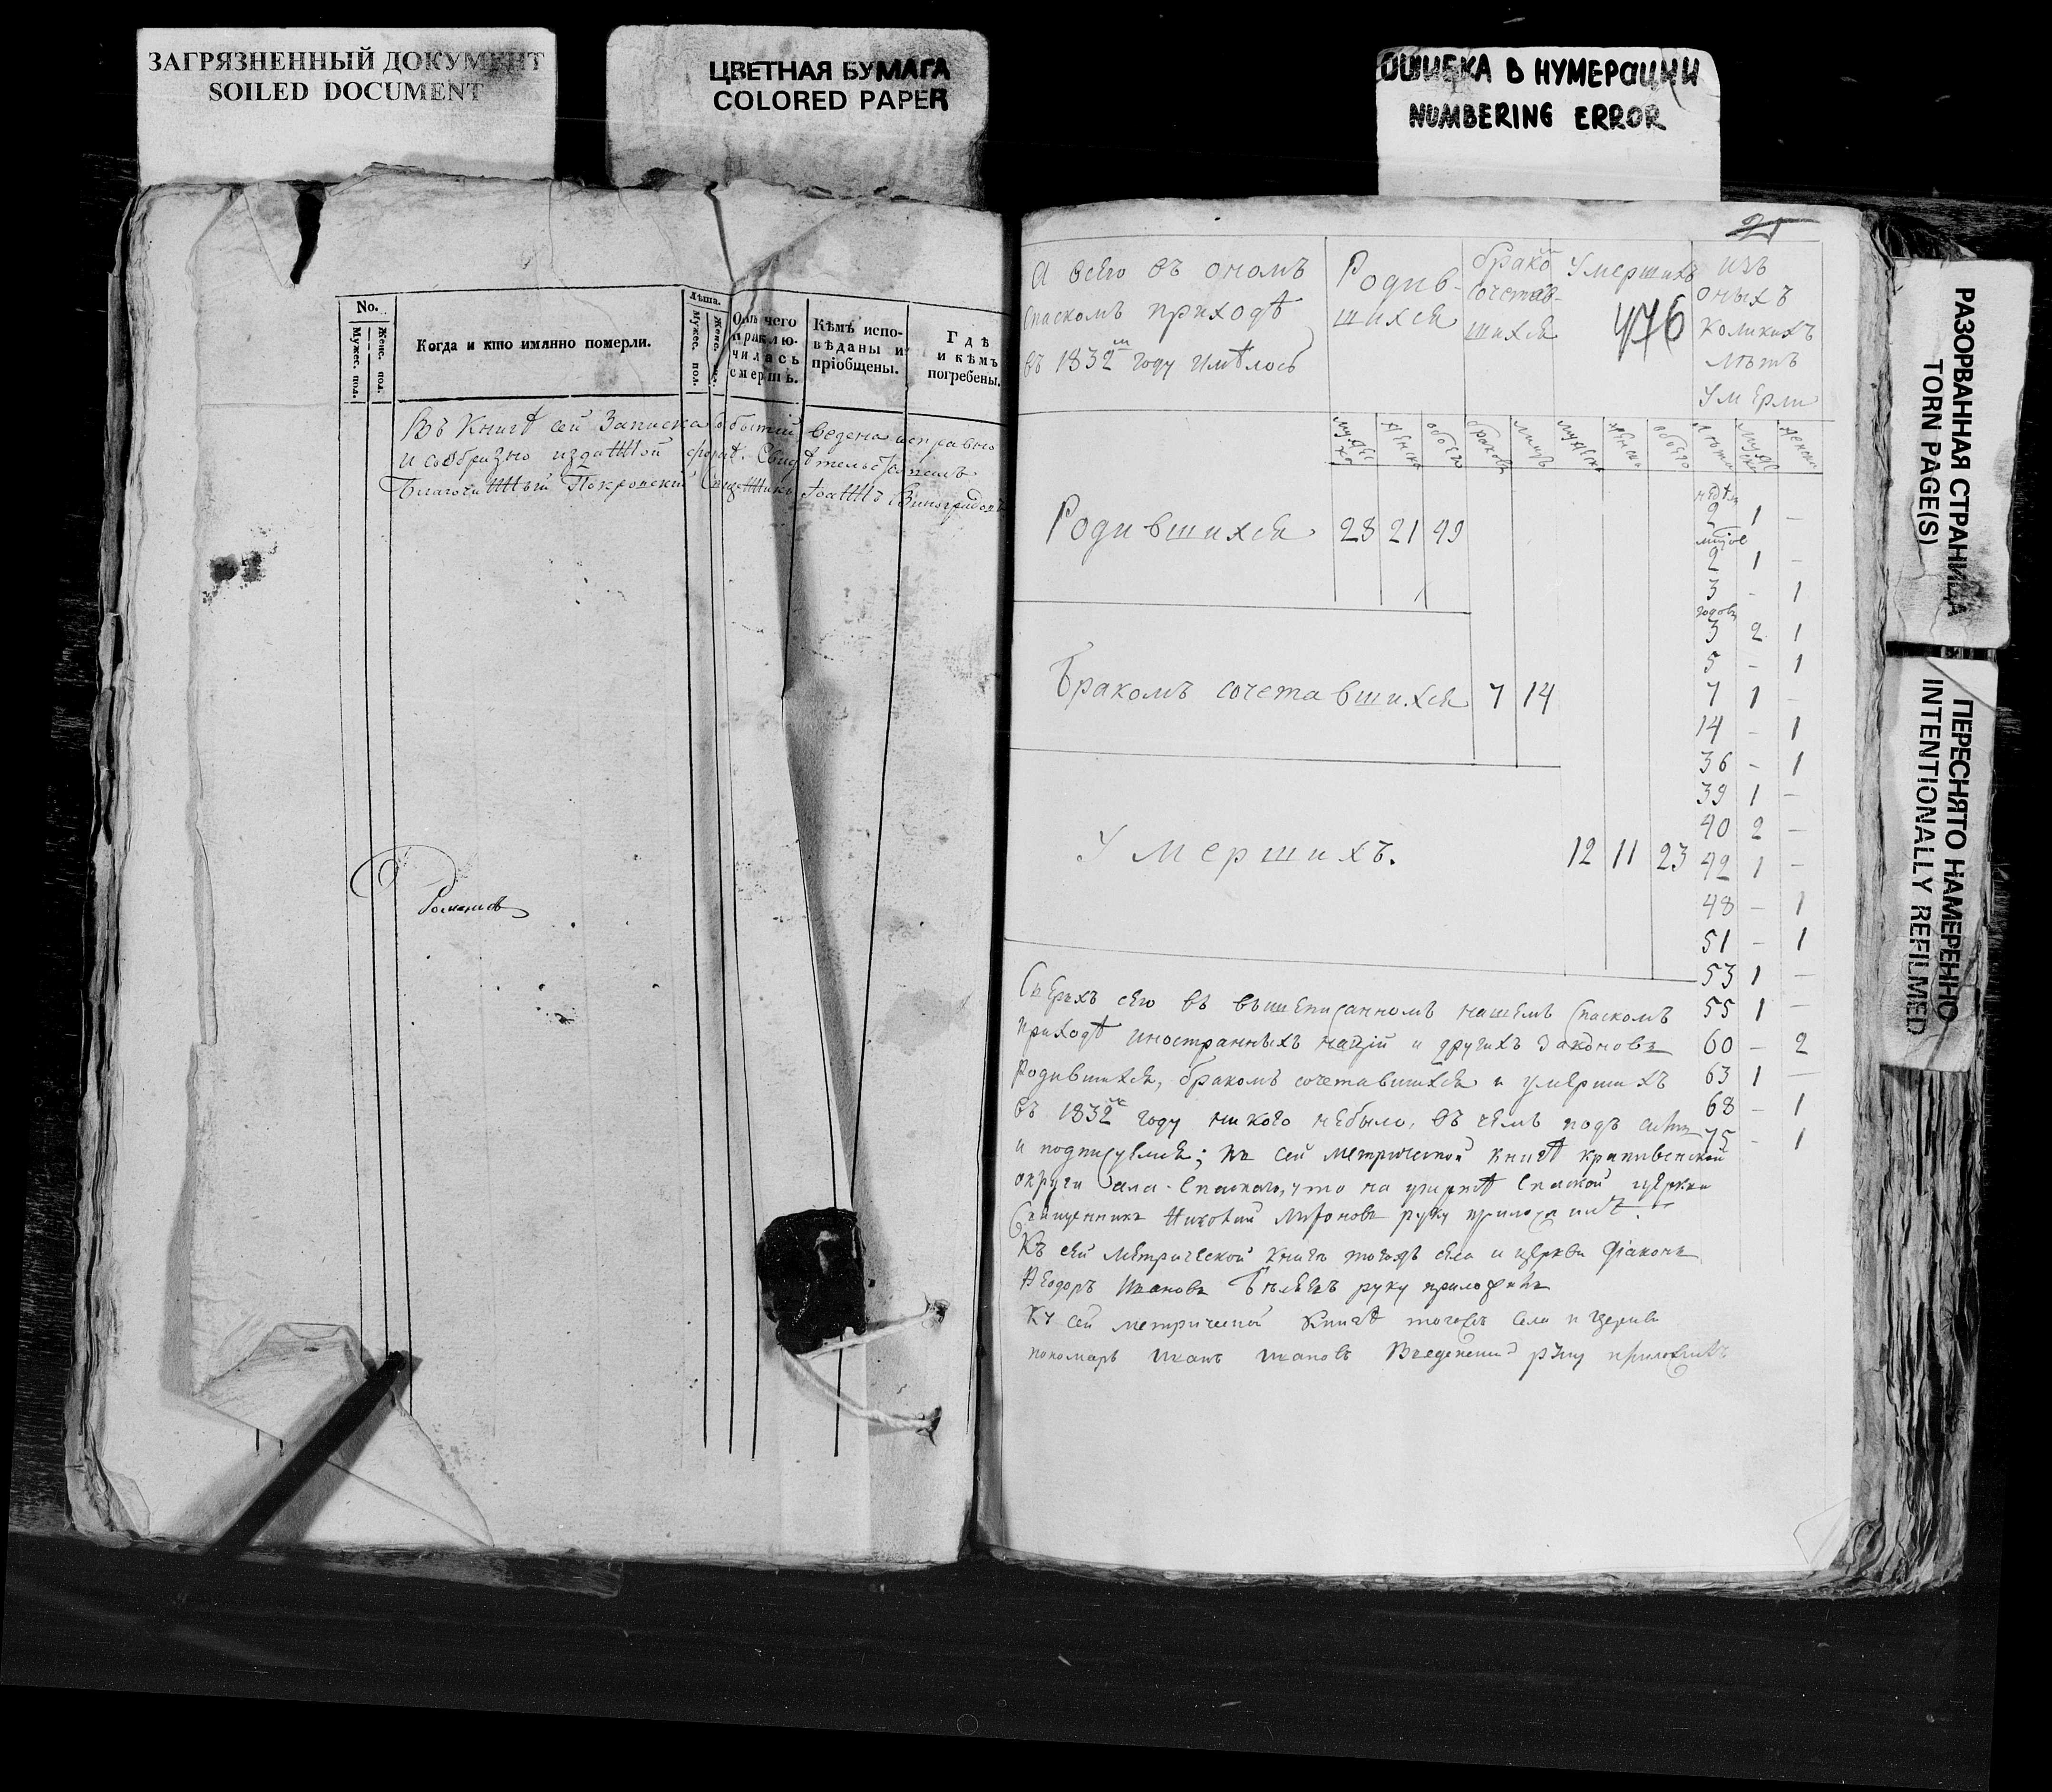 ЗАГРЯЗНЕННЫЙ ДОКУМЕНТ
SOILED DOCUMENT
ЦВЕТНАЯ БУМАГА
COLORED PAPER
ОШИБКА В НУМЕРАЦИИ
NUMBERING ERROR
No.
Мужес. пол.
Женс. пол.
Когда и кто имянно померли.
Лѣта.
Мужес. пол.
Женс. пол.
Отъ чего
приклю-
чилась
смерть.
Кѣмъ испо-
вѣданы и
пріобщены.
Гдѣ
и кѣмъ
погребены.
Въ Книгѣ сей Записка событій ведена исправно
и сообразно изданной формѣ. Свидѣтельствовалъ
Благочинный Покровскій Священникъ Іоаннъ Виноградовъ
Романовъ
21
А всего въ ономъ
Спаскомъ приходѣ
въ 1832м году имѣлось
Родив-
шихся
брако
сочетав-
шихся
Умершихъ
476
изъ
оныхъ
коликихъ
лѣтъ
умерли
мужеска
женска
обоего
браковъ
лицъ
мужеска
женска
обоего
лѣта
мужеска
женска
Родившихся 28 21 49
Бракомъ сочетавшихся 7 14
Умершихъ. 12 11 23
недѣль
2 1 -
2 1 -
3 - 1
годовъ
3 2 1
5 - 1
7 1 -
14 - 1
36 - 1
39 1 -
40 2 -
42 1 -
48 - 1
51 - 1
53 1 -
55 1 -
60 - 2
63 1 -
68 - 1
75 - 1
Сверхъ сего въ вышеписанномъ нашемъ Спаскомъ
приходѣ иностранныхъ націй и другихъ законовъ
родившихся, бракомъ сочетавшихся и умершихъ
въ 1832м году никого небыло, въ чемъ подъ симъ
и подписуемся; къ сей метрической книгѣ крапивенской
округи села Спаскаго, что на упертѣ Спаской церкви
Священникъ Миронова руку приложилъ.
Къ сей метрической книгѣ тогожъ села и церкви Діаконъ
Ѳеодоръ Иванова Бѣляевъ руку приложилъ
Къ сей метрической книгѣ тогожъ села и церкви
пономарь Иванъ Ивановъ Введенскій руку приложилъ
РАЗОРВАННАЯ СТРАНИЦА
TORN PAGE(S)
ПЕРЕСНЯТО НАМЕРЕННО
INTENTIONALLY REFILMED